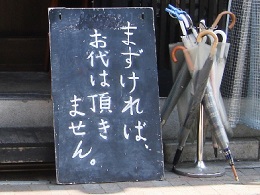 まずければ、
お代は頂き
ません。